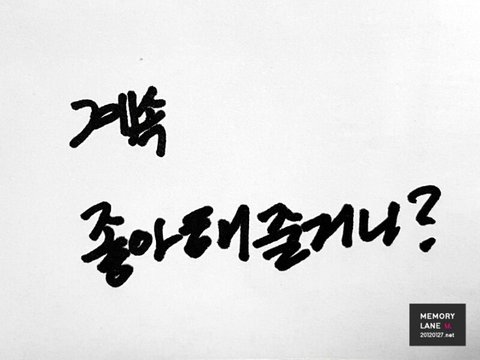 계속
좋아해 줄거니?
MEMORY
LANE M.
20120127.net